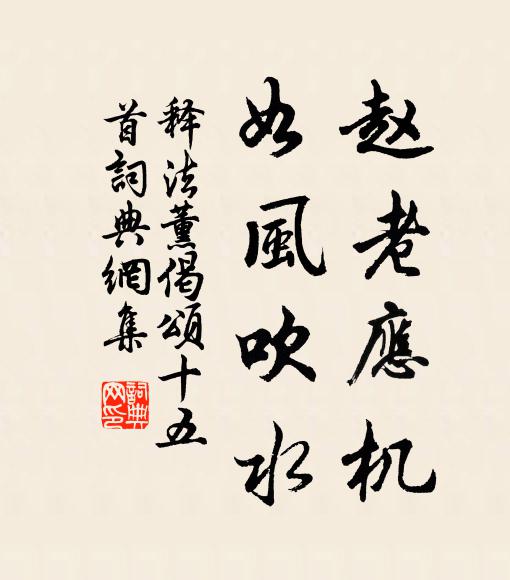 赵老應机
如風吹水
释法薰偈頌十五
首詞典網集
詞典
网印